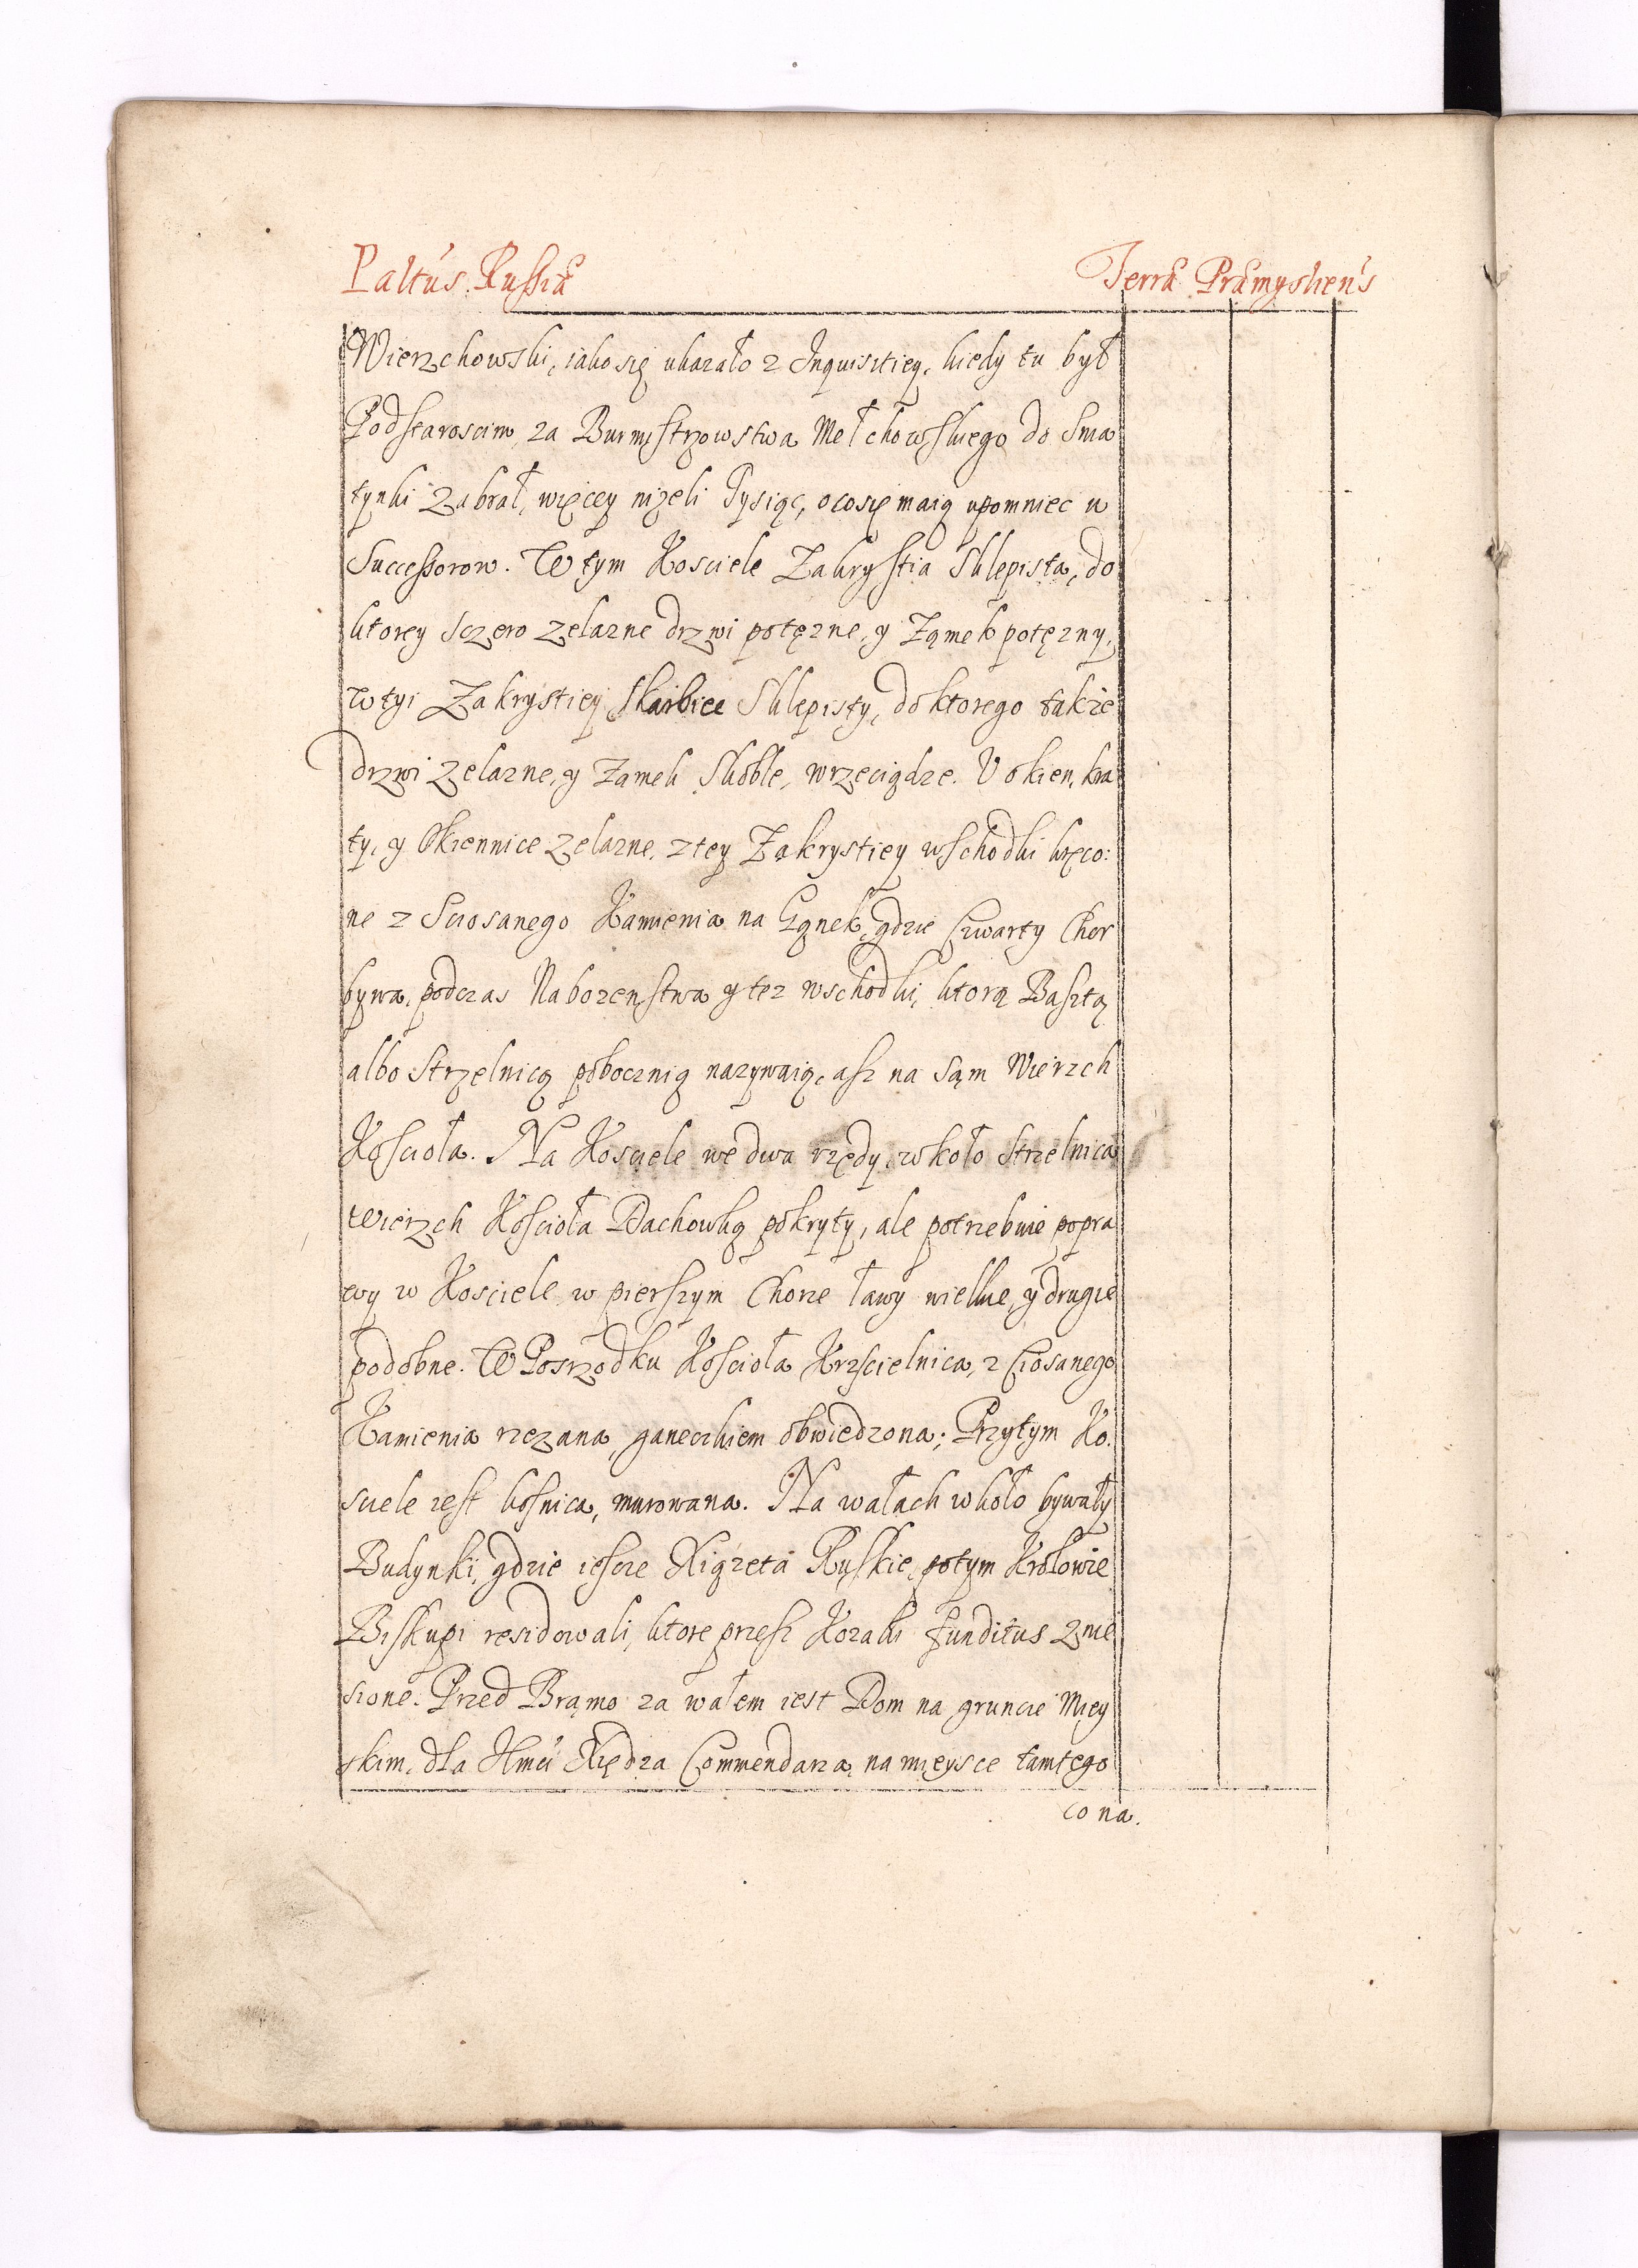 Paltus. Russiæ
Terræ Præmysliens
Wierzchowski, iako się ukazało z Inquisitiey, kiedy tu był
Podstaroscim, za Burmistrzowstwa Mełchowskiego do Sma
tynki Zabrał, więcey niżeli Tysiąc, o co się maią upomniec u
Successorow. W tym Kosciele Zakrystia Sklepista, do
ktorey sczero zelazne drzwi potęzne, y Zamek potęzny,
w tyi Zakrystiey Skarbiec Sklepisty, do ktorego także
drzwi zelazne, y Zamek Skoble, wrzeciądze. U okien, kra
ty, y Okiennice zelazne, z tey Zakrystiey wschodki kręco:
ne z Sciosanego Kamienia na Gąnek, gdzie Czwarty Chor
bywa, podczas Nabozenstwa y tez wschodki, ktorą Basztą
albo Strzelnicą pobocznią nazywaią, asz na sąm Wierzch
Koscioła. Na Kosciele we dwa rzędy, wkoło Strzelnica
Wierzch Koscioła Dachowką pokryty, ale potrzebuie popra
wy w Kosciele w pierszym Chorze ławy wielkie, y drugie
podobne. W Posrzodku Koscioła Krzscielnica, z Ciosanego
Kamienia rzezana, ganeczkiem obwiedzona; Przytym Ko:
sciele iest kosnica, murowana. Na wałach wkoło bywały
Budynki, gdzie iescze Xiązeta Ruskie, potym Krolowie
Biskupi residowali, ktore przesz Kozaki funditus znie
sione. Przed Bramo za wałem iest Dom na gruncie Miey
skim, dla Jmci Xiędza Commendarza, na mieysce tamtego
co na.